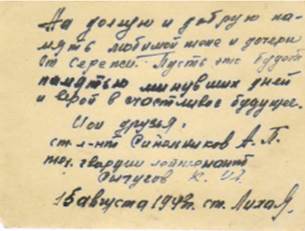 На долгую и добрую па-
мять любимой жене и дочери
от Сережи. Пусть это будет
памятью минувших дней
и верой в счастливое будущее.
Мои друзья:
ст. л-нт А. П.
гвардии лейтенант
К. И.
15 августа 1942г. ст. Лихая